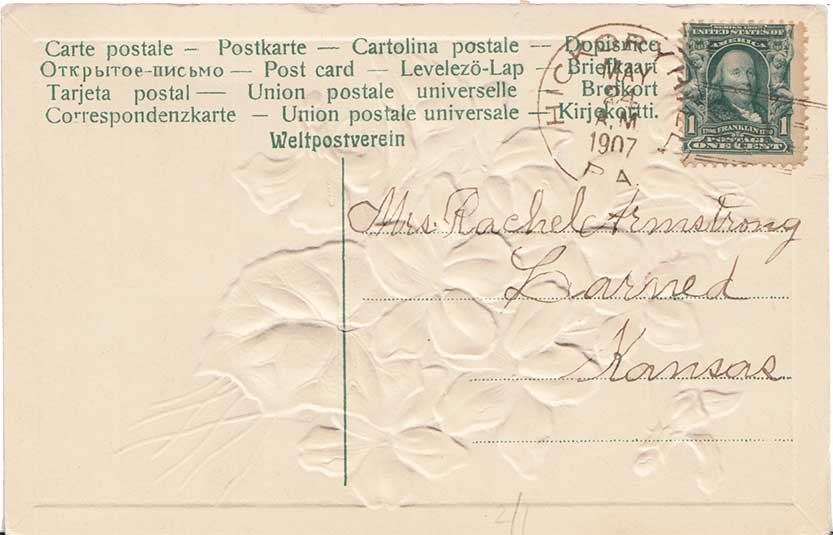 Carte postale – Postkarte — Cartolina postale — Dopisnice
Открытое-письмо — Post card — Levelezö-Lap — Briefkaart
Tarjeta postal — Union postale universelle — Brefkort
Correspondenzkarte – Union postale universale – Kirjekortti.
Weltpostverein
HICKORY
MAY
A.M
1907
PA.
SERIES 1902
UNITED STATES OF
AMERICA
1 FRANKLIN 1
POSTAGE
ONE CENT
Mrs. Rachel Armstrong
Larned
Kansas
2/1